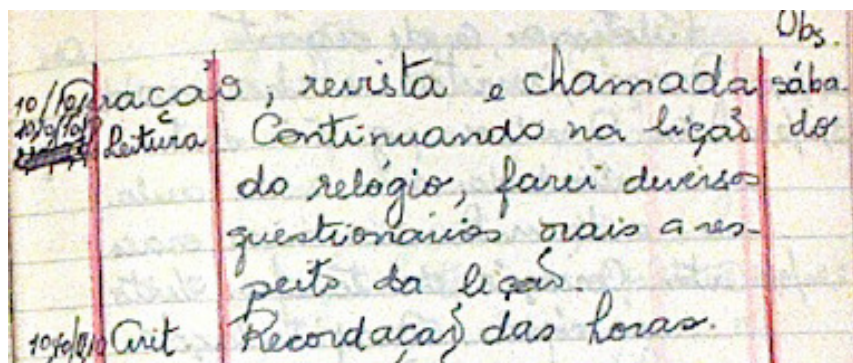 Obs.
Oração, revista e chamada sába-
Leitura Continuando na lição do
do relógio, farei diversos
questionários orais a res-
peito da lição.
Arit Recordação das horas.